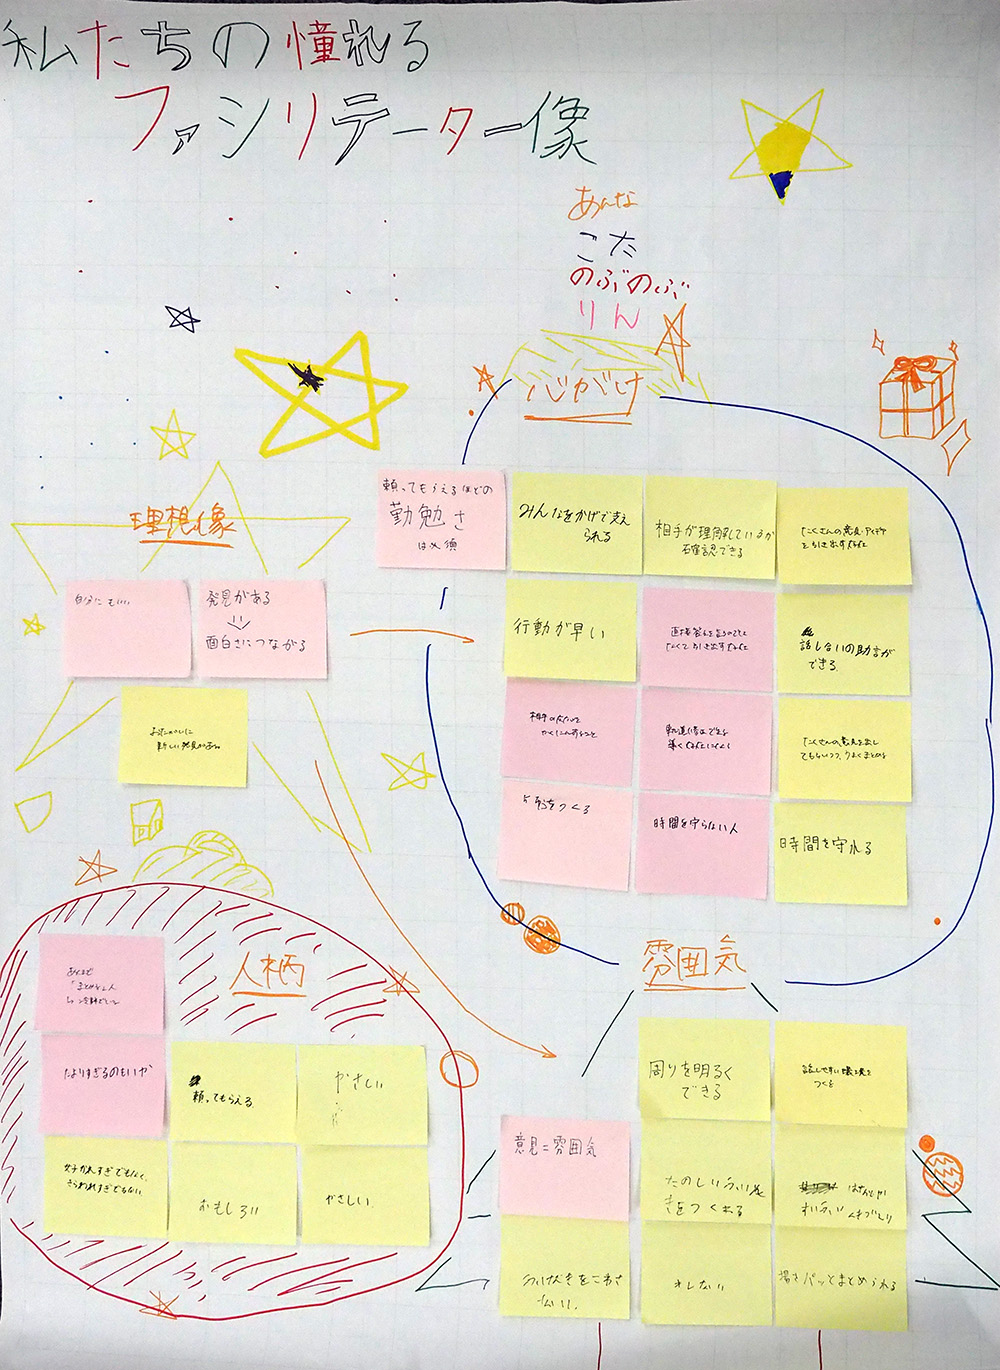 私たちの憧れる
ファシリテーター像
あんな
こた
のぶのぶ
りん
心がけ
頼ってもらえるほどの
勤勉さ
は必須
みんなをかげで支え
られる
相手が理解しているか
確認できる
たくさんの意見・アイデア
を引き出す
行動が早い
直接答えを言うのでは
なくて引き出す
話し合いの助言が
できる
相手の
かくにんすること
軌道修正できる
導く
たくさんの意見を出し
てもらいつつ、うまくまとめる
をつくる
時間を守らない人
時間を守れる
理想像
自分にも
発見がある
面白さにつながる
新しい発見がある
人柄
あくまで
「まとめる人
たよりすぎるのもいや
頼ってもらえる
やさしい
好かれすぎでもなく、
きらわれすぎでもない
おもしろい
やさしい
雰囲気
周りを明るく
できる
話しやすい環境を
つくる
意見=雰囲気
たのしいふんい
きをつくれる
はなしや
すいふんい
ふんいきをこわさ
ない。
キレない
場をパッとまとめられる